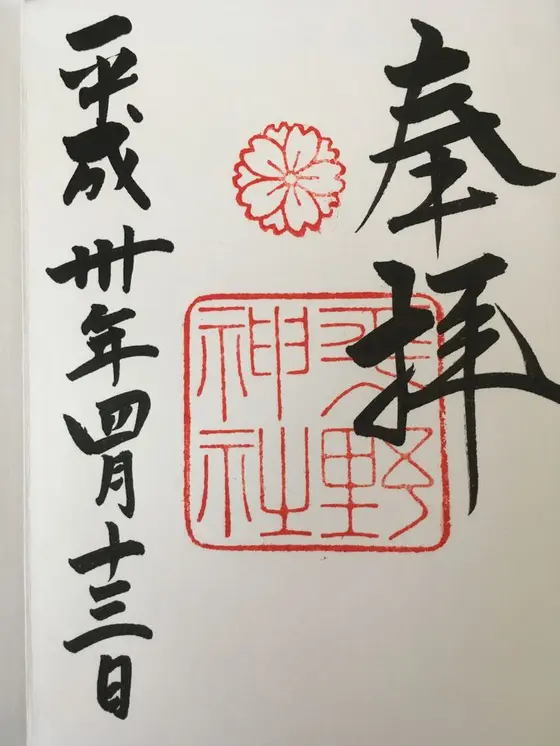 奉拝
平野
神社
平成卅年四月十三日